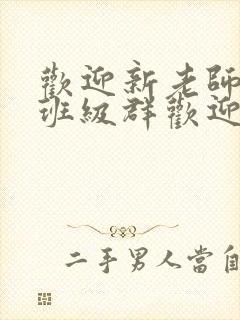 歡迎新老師
班級群歡迎
二手男人當自